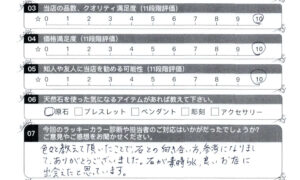 03 当店の品数、クオリティ満足度(11段階評価)
0 1 2 3 4 5 6 7 8 9 10
04 価格満足度(11段階評価)
0 1 2 3 4 5 6 7 8 9 10
05 知人や友人に当店を勧める可能性(11段階評価)
0 1 2 3 4 5 6 7 8 9 10
06 天然石を使った気になるアイテムがあれば教えて下さい。
原石 ・ ブレスレット ・ ペンダント ・ 彫刻 ・ アクセサリー
07 今回のラッキーカラー診断や担当者のご対応はいかがだったでしょうか?
ご意見やご感想をお聞かせください。
色々教えて頂いたことで、石との組合い方、参考になりまし
て、ありがとうございました。石が素晴しく、良いお店に
出会えたと思っています。